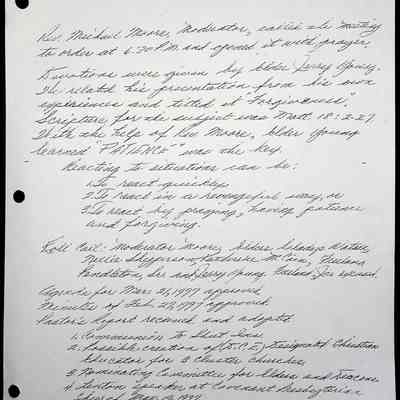 Rev. Michael Moore Moderator, called the meeting
to order at 6:30 P.M. and opened it with prayer.
Devotions were given by Elder Jerry Young.
He related his presentation from his own
experiences and titled it "Forgiveness".
Scripture for the subject was Matt 18:2-27
With the help of Rev Moore, Elder Young
learned "PATIENCE" was the key.
Reacting to situations can be:
1. To react quickly
2. To react in a revengeful way, or
3. To react by praying, having patience
and forgiving.
Roll Call: Moderator Moore, Elders Gladys
Nellie Katherine McCain,
Pendleton, and Jerry Young.
Agenda for Mar 21, 1999 approved
Minutes of Feb. 28, 1999 approved
Pastor's Report received and adopted
1. Communion to Shut Ins
2. Possible creation of (D.C.E.) Designated Christian
Educator for 3 Cluster Churches
3. Nominating Committee for Elders and Deacons
4. Lenten Speaker at Covenant Presbyterian
Church Mar. 1999